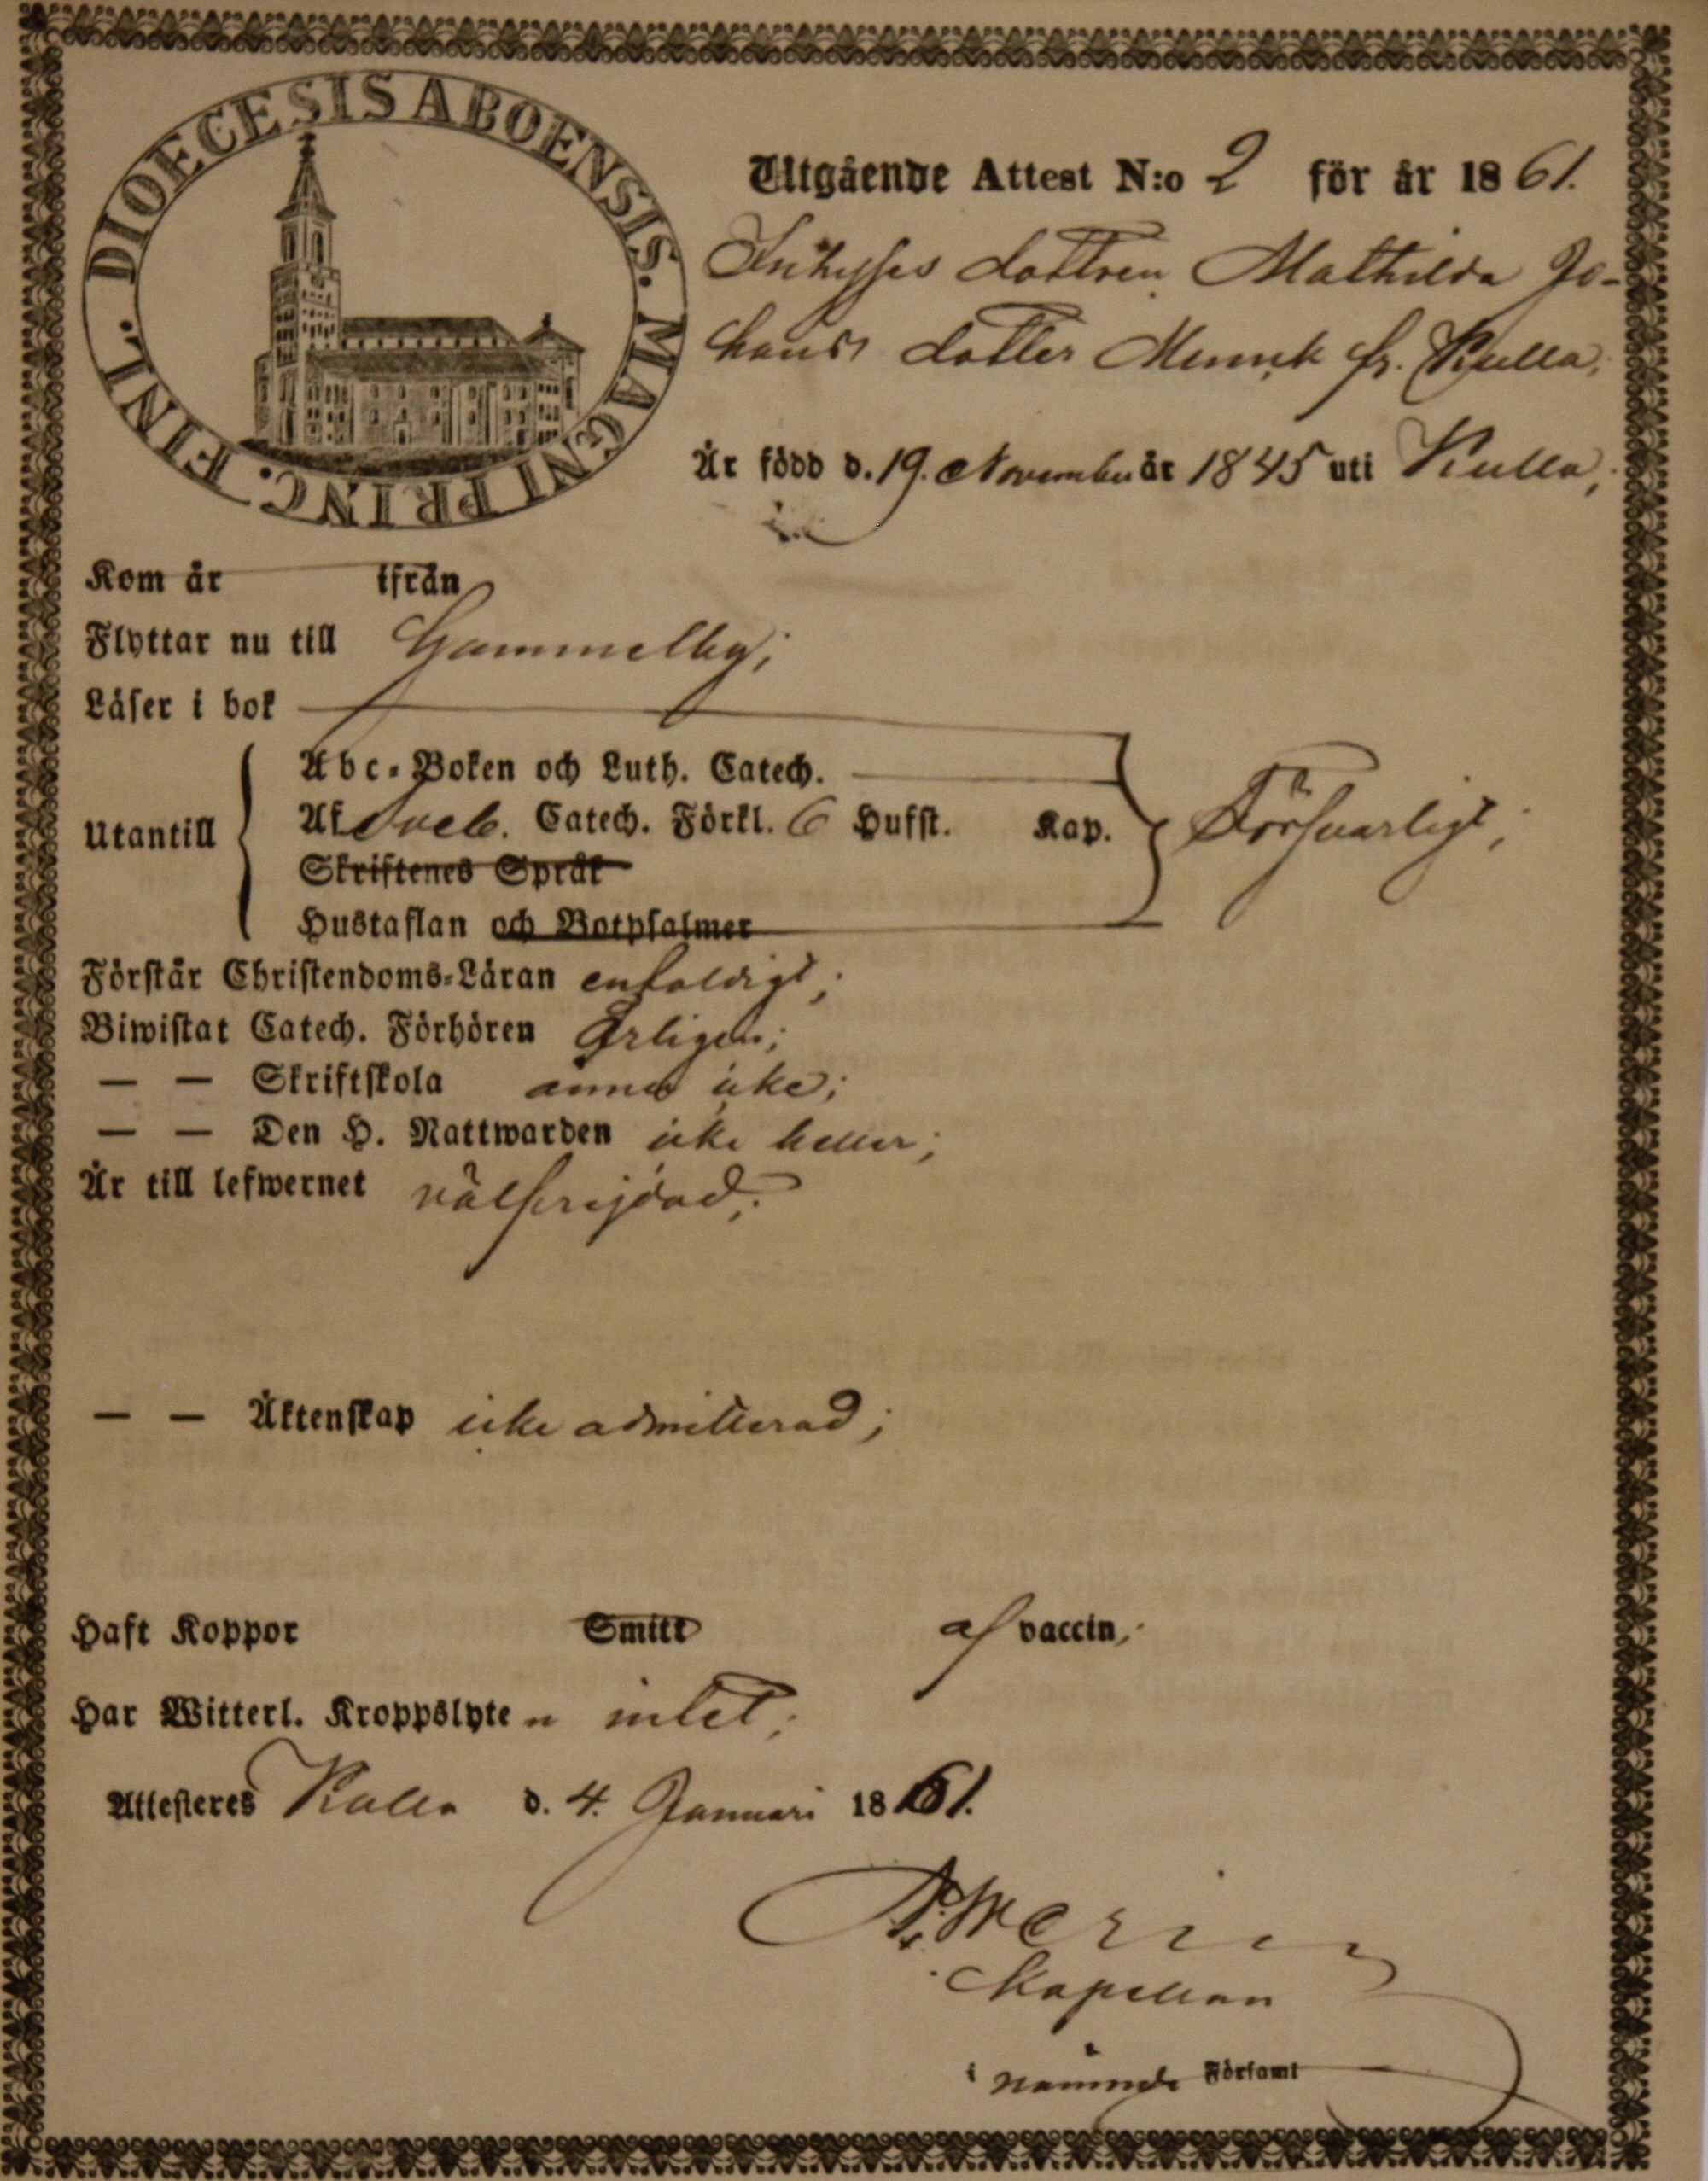 DIOECESIS ABOENSIS. MAGNI PRINC. FINL.
Utgående Attest N:o 2 för år 1861.
Inhyses dottren Mathilda Jo-
hans dotter Munck fr. Kulla;
Är född d. 19. November år 1845 uti Kulla;
Kom år ifrån
Flyttar nu till Gammelby;
Läser i bok
Utantill
Abc-Boken och Luth. Catech.
Af Sveb. Catech. Förkl. 6 Hufst. Kap. Försvarligt;
Skriftenes Språk
Hustaflan och Botpsalmer
Förstår Christendoms-Läran enfaldigt;
Biwistat Catech. Förhören årligen;
— — Skriftskola ännu icke;
— — Den H. Nattwarden icke heller;
Är till lefwernet välfrejdad;
— — Äktenskap icke admitterad;
Haft Koppor Smitt af vaccin;
Har Witterl. Kroppslyten intet;
Attesteres Kulla d. 4. Januari 1861.
Kapellan
i nämnde Församl